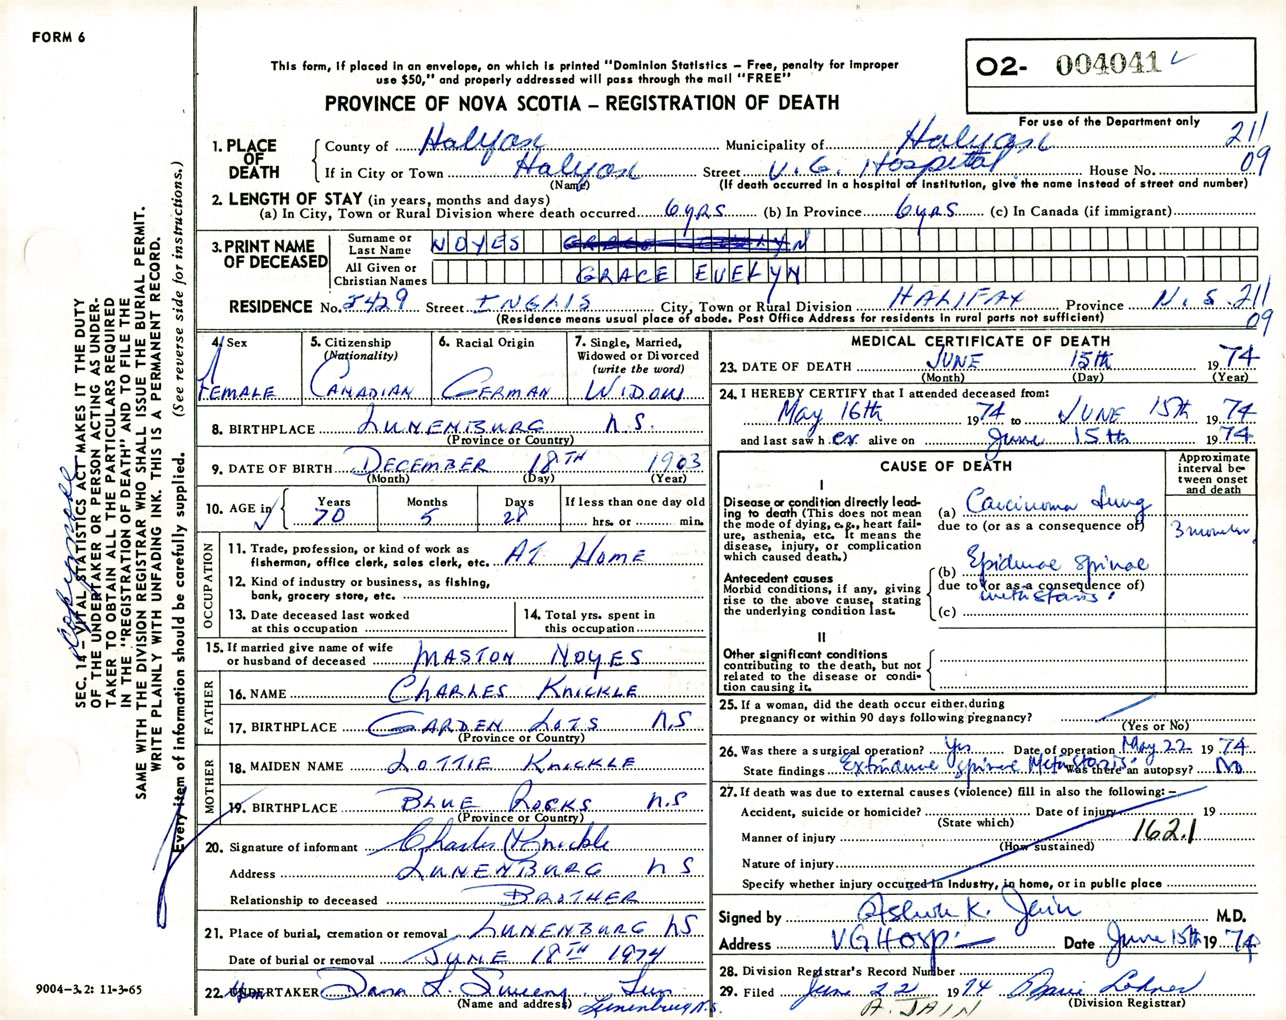 FORM 6
This form, if placed in an envelope, on which is printed "Dominion Statistics – Free, penalty for improper
use $50," and properly addressed will pass through the mail "FREE"
PROVINCE OF NOVA SCOTIA – REGISTRATION OF DEATH
O2- 004041
For use of the Department only
1. PLACE OF DEATH
County of Halifax Municipality of Halifax 211
If in City or Town Halifax Street V.G. Hospital House No. 09
(Name) (If death occurred in a hospital of institution, give the name instead of street and number)
2. LENGTH OF STAY (in years, months and days)
(a) In City, Town or Rural Division where death occurred 6 yrs (b) In Province 6 yrs (c) In Canada (if immigrant)
3. PRINT NAME OF DECEASED
Surname or Last Name NOYES
All Given or Christian Names GRACE EVELYN
RESIDENCE No. 5429 Street INGLIS City, Town or Rural Division HALIFAX Province N.S. 211
(Residence means usual place of abode. Post Office Address for residents in rural parts not sufficient) 09
4. Sex FEMALE
5. Citizenship (Nationality) CANADIAN
6. Racial Origin GERMAN
7. Single, Married, Widowed or Divorced (write the word) WIDOW
8. BIRTHPLACE LUNENBURG N.S.
(Province or Country)
9. DATE OF BIRTH DECEMBER 18TH 1903
(Month) (Day) (Year)
10. AGE in Years 70 Months 5 Days 28 If less than one day old
hrs. or min.
OCCUPATION
11. Trade, profession, or kind of work as
fisherman, office clerk, sales clerk, etc. AT HOME
12. Kind of industry or business, as fishing,
bank, grocery store, etc.
13. Date deceased last worked
at this occupation
14. Total yrs. spent in
this occupation
15. If married give name of wife
or husband of deceased MASTON NOYES
FATHER
16. NAME CHARLES KNICKLE
17. BIRTHPLACE GARDEN LOTS N.S
(Province or Country)
MOTHER
18. MAIDEN NAME LOTTIE KNICKLE
19. BIRTHPLACE BLUE ROCKS N.S
(Province or Country)
20. Signature of informant Charles Knickle
Address LUNENBURG N S
Relationship to deceased BROTHER
21. Place of burial, cremation or removal LUNENBURG NS
Date of burial or removal JUNE 18TH 1974
22. UNDERTAKER Dana L. Sweeny
(Name and address) Lunenburg N.S.
MEDICAL CERTIFICATE OF DEATH
23. DATE OF DEATH JUNE 15th 1974
(Month) (Day) (Year)
24. I HEREBY CERTIFY that I attended deceased from:
May 16th 1974 to JUNE 15th 1974
and last saw her alive on June 15th 1974
CAUSE OF DEATH
Approximate interval between onset and death
I
Disease or condition directly leading to death (This does not mean the mode of dying, e.g., heart failure, asthenia, etc. It means the disease, injury, or complication which caused death.)
(a) Carcinoma Lung
due to (or as a consequence of) 3 months
Antecedent causes
Morbid conditions, if any, giving rise to the above cause, stating the underlying condition last.
(b) Epidural spinal
due to (or as a consequence of)
metastasis
(c)
II
Other significant conditions
contributing to the death, but not related to the disease or condition causing it.
25. If a woman, did the death occur either during
pregnancy or within 90 days following pregnancy?
(Yes or No)
26. Was there a surgical operation? Yes Date of operation May 22 1974
State findings Extradural spinal Metastasis Was there an autopsy? No
27. If death was due to external causes (violence) fill in also the following: –
Accident, suicide or homicide? Date of injury 19
(State which)
Manner of injury 162.1
(How sustained)
Nature of injury
Specify whether injury occurred in industry, in home, or in public place
Signed by Ashok K. Jain M.D.
Address VG Hosp. Date June 15th 1974
28. Division Registrar's Record Number
29. Filed June 22 1974
(Division Registrar)
A. JAIN
SEC. 14 – VITAL STATISTICS ACT MAKES IT THE DUTY
OF THE UNDERTAKER OR PERSON ACTING AS UNDER-
TAKER TO OBTAIN ALL THE PARTICULARS REQUIRED
IN THE "REGISTRATION OF DEATH" AND TO FILE THE
SAME WITH THE DIVISION REGISTRAR WHO SHALL ISSUE THE BURIAL PERMIT.
WRITE PLAINLY WITH UNFADING INK. THIS IS A PERMANENT RECORD.
Every item of information should be carefully supplied. (See reverse side for instructions.)
9004-3.2: 11-3-65